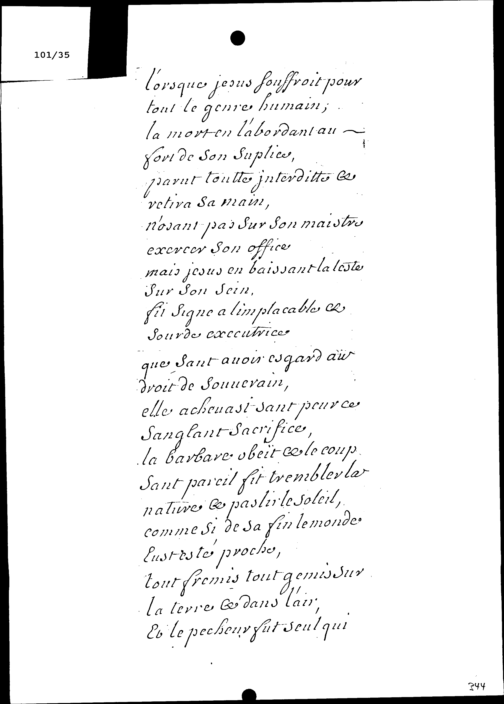 101/35
lorsque jesus souffroit pour
tout le genre humain;
la mort en l'abordant au ~
fort de son suplice,
parut toutte jnterditte &
retira sa main,
n'osant pas sur son maistre
exercer son office
mais jesus en baissant la teste
sur son sein,
fit signe a limplacable &
sourde executrice
que sant auoir esgard aü
droit de souuerain,
elle acheuast sant peur ce
sanglant sacrifice,
la barbare obeït & le coup
sant pareil fit trembler la
nature & paslir le soleil,
comme si de sa fin le monde
eust esté proche,
tout fremis tout gemis sur
la terre & dans l'air,
Et le pecheur fut seul qui
244